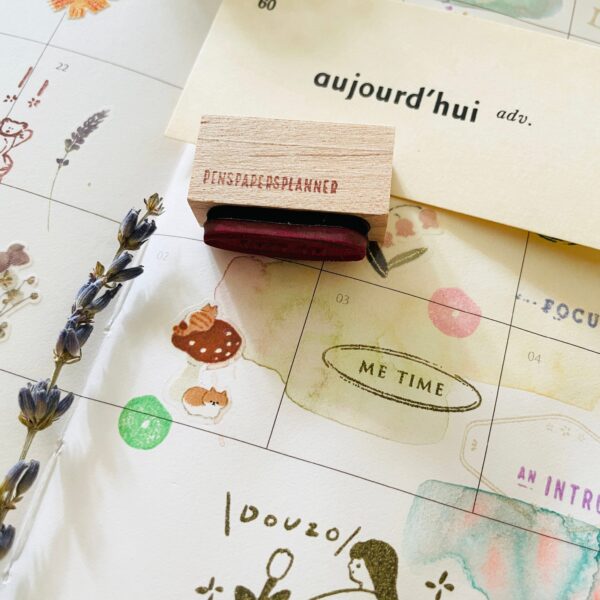 60
aujourd'hui adv.
22
PENSPAPERSPLANNER
02
03
FOCU
04
ME TIME
AN INTRO
DOUZO